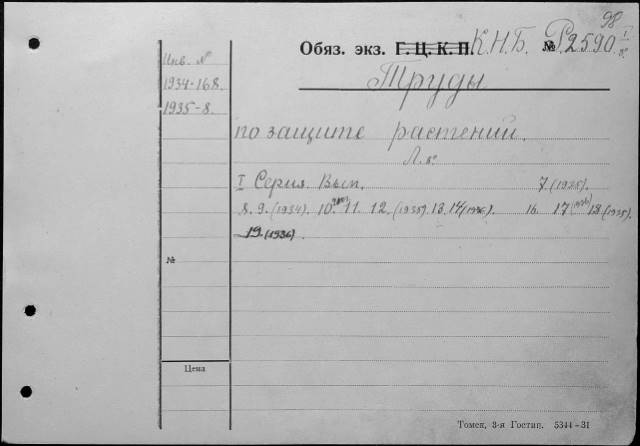 98
Обяз. экз. Г. Ц. К. П. К.Н.Б. № Р2590 I
8°
Инв. №
1934-168.
1935-8.
Труды
по защите растений.
Л. 8°
I Серия. Вып. 7 (1935).
8. 9. (1934). 10. 11. 12. (1935). 13. 14 (1936). 16. 17 (1936) 18 (1935).
19. (1936).
№
Цена
Томск, 3-я Гостип. 5344-31